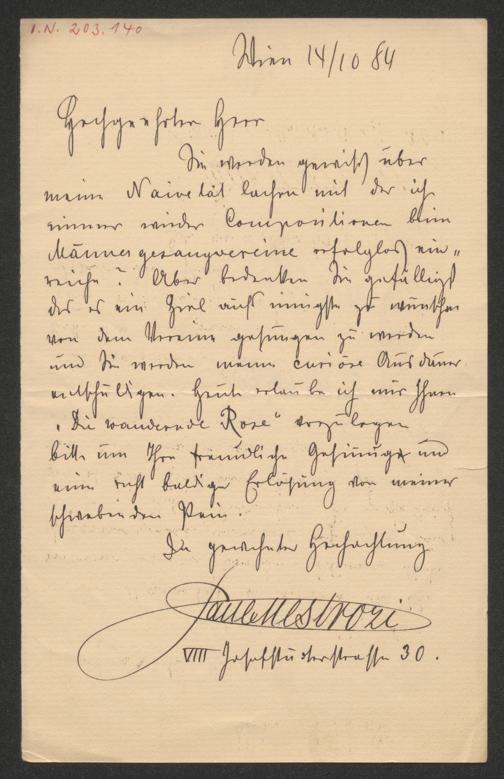 I.N. 203.140
Wien 14/10 84
Hochgeehrter Herr
Sie werden gewiß über
meine Naivetät lachen mit der ich
immer wieder Compositionen beim
Männergesangvereine erfolglos ein-
reiche? Aber bedenken Sie gefälligst
daß es ein Ziel aufs innigste zu wünschen
von dem Vereine gesungen zu werden
und Sie werden meine curiose Ausdauer
entschuldigen. Heute erlaube ich mir Ihnen
"Die wandernde Rose" vorzulegen
bitte um Ihre freundliche Gesinnung und
eine recht baldige Erlösung von meiner
schwebenden Pein.
In gewohnter Hochachtung
Paul Mestrozi
VIII Josefstädterstrasse 30.